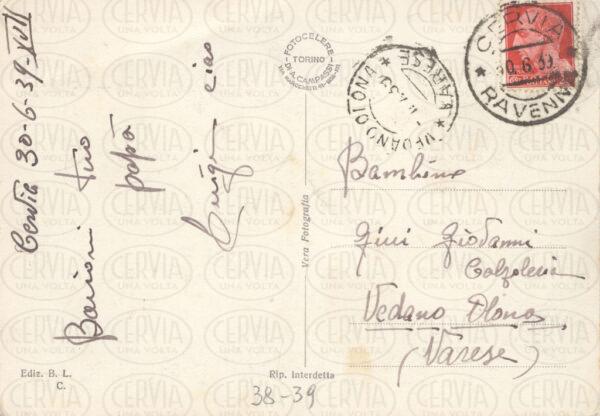 Cervia 30-6-39-XVII
Bacioni tuo
papà
Luigi ciao
FOTOCELERE
TORINO
DI A. CAMPASSI
VEDANO OLONA
VARESE
CERVIA
30.6.39
RAVENNA
Bambino
Gini Giovanni
Calzoleria
Vedano Olona
(Varese)
Vera Fotografia
Ediz. B. L.
C.
Rip. Interdetta
38-39
CERVIA
UNA VOLTA